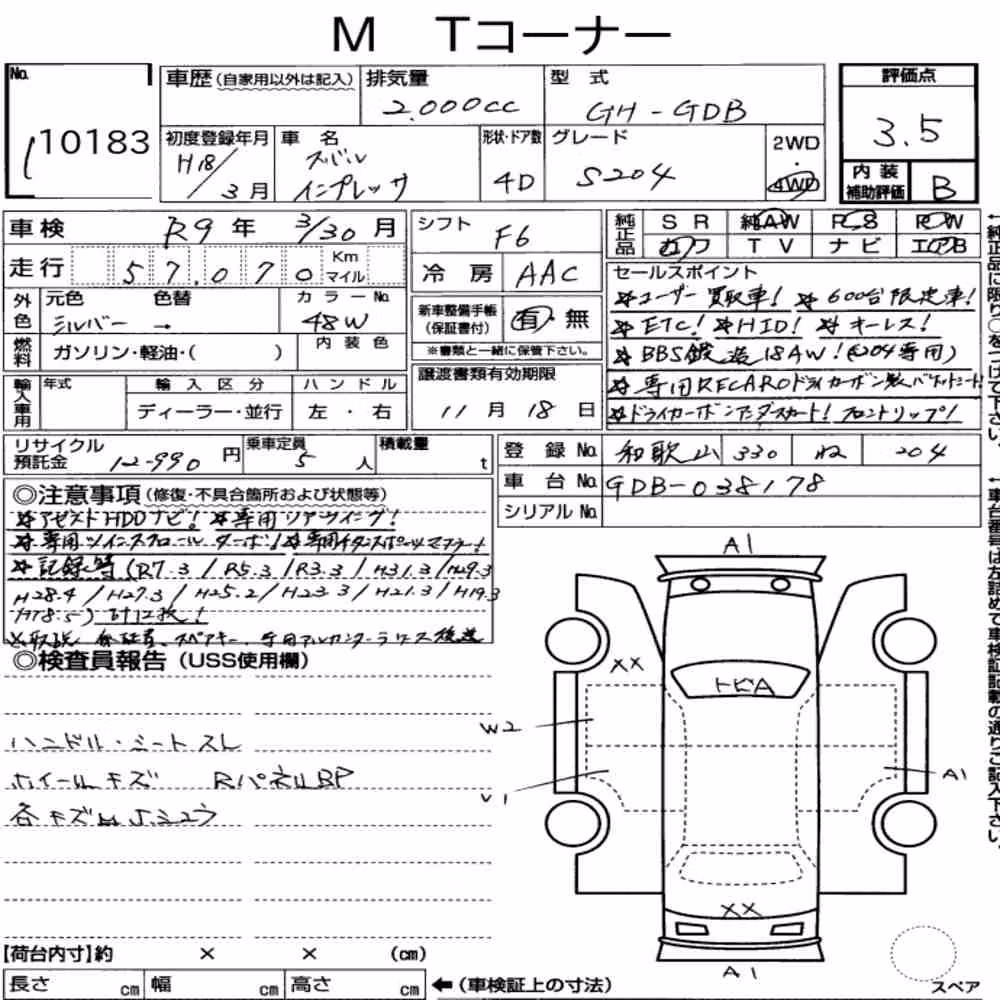 M Tコーナー
No. 10183
車歴 (自家用以外は記入) 排気量 2.000cc 型式 GH-GDB
評価点 3.5
初度登録年月 H18/3月 車名 スバル インプレッサ 形状・ドア数 4D グレード S204 2WD・4WD
内装補助評価 B
車検 R9年 3/30月
走行 57.070 Km マイル
シフト F6
冷房 AAC
純正品 SR 純AW PS PW
カワ TV ナビ エアB
外色 元色 シルバー → 色替 カラーNo. 48W
内装色
燃料 ガソリン・軽油・( )
新車整備手帳(保証書付) 有・無
※書類と一緒に保管下さい。
セールスポイント
☆ユーザー買取車! ☆600台限定車!
☆ETC! ☆HID! ☆キーレス!
☆BBS鍛造18AW!(S204専用)
☆専用RECAROドライカーボン製バケットシート!
☆ドライカーボンアンダースカート! フロントリップ!
輸入車用 年式 輸入区分 ディーラー・並行 ハンドル 左・右
譲渡書類有効期限 11月18日
リサイクル預託金 12-990円 乗車定員 5人 積載量 t
登録No. 和歌山 330 ね 204
車台No. GDB-038178
シリアルNo.
◎注意事項 (修復・不具合箇所および状態等)
☆アゼストHDDナビ! ☆専用リアウイング!
☆専用ツインスクロールターボ! ☆専用チタンスポーツマフラー!
☆記録簿 (R7.3/R5.3/R3.3/H31.3/H29.3
H28.4/H27.3/H25.2/H23.3/H21.3/H19.3
H18.5) 計12枚!
※取説 保証書、スペアキー、
後送
◎検査員報告 (USS使用欄)
ハンドル・シートスレ
ホイールキズ RパネルBP
各キズ
A1
XX
トビA
W2
U1
A1
XX
A1
スペア
【荷台内寸】約 × × (cm)
長さ cm 幅 cm 高さ cm ←(車検証上の寸法)
←純正品に限り○をつけて下さい。
←車台番号は左詰めて車検証記載の通りご記入下さい。